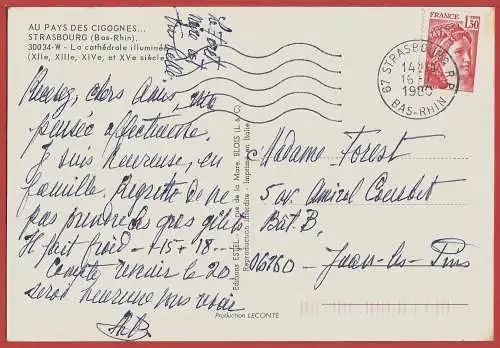 AU PAYS DES CIGOGNES...
STRASBOURG (Bas-Rhin).
30034-W - La cathédrale illuminée
(XIIe, XIIIe, XIVe, et XVe siècle)
chers Amis, une
pensée affectueuse.
Je suis heureuse, en
famille. Regrette de ne
pas prendre
Il fait froid -15 -18 --
Compte revenir le 20
serai heureuse vous voir
Editions ESTEL, rue de la Mare, BLOIS (L. & C.)
Reproduction interdite - Imprimé en Italie
Production LECONTE
FRANCE
1,30
67 STRASBOURG R.P.
14H
16 -
1980
BAS-RHIN
Madame Forest
5 av. Amiral Courbet
Bât. B.
06160 Juan-les-Pins